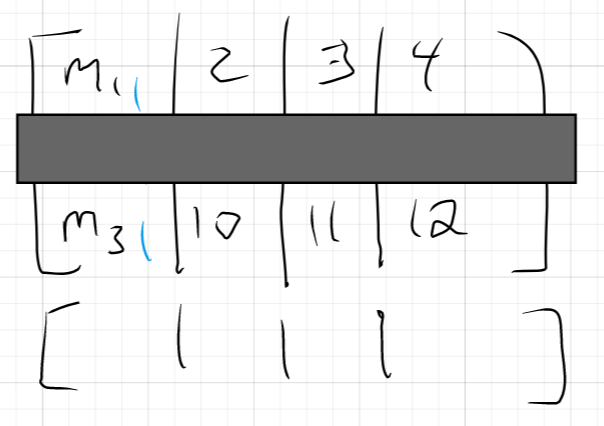 [ m₁₁ | 2 | 3 | 4 ]
[ m₃₁ | 10 | 11 | 12 ]
[ | | | ]